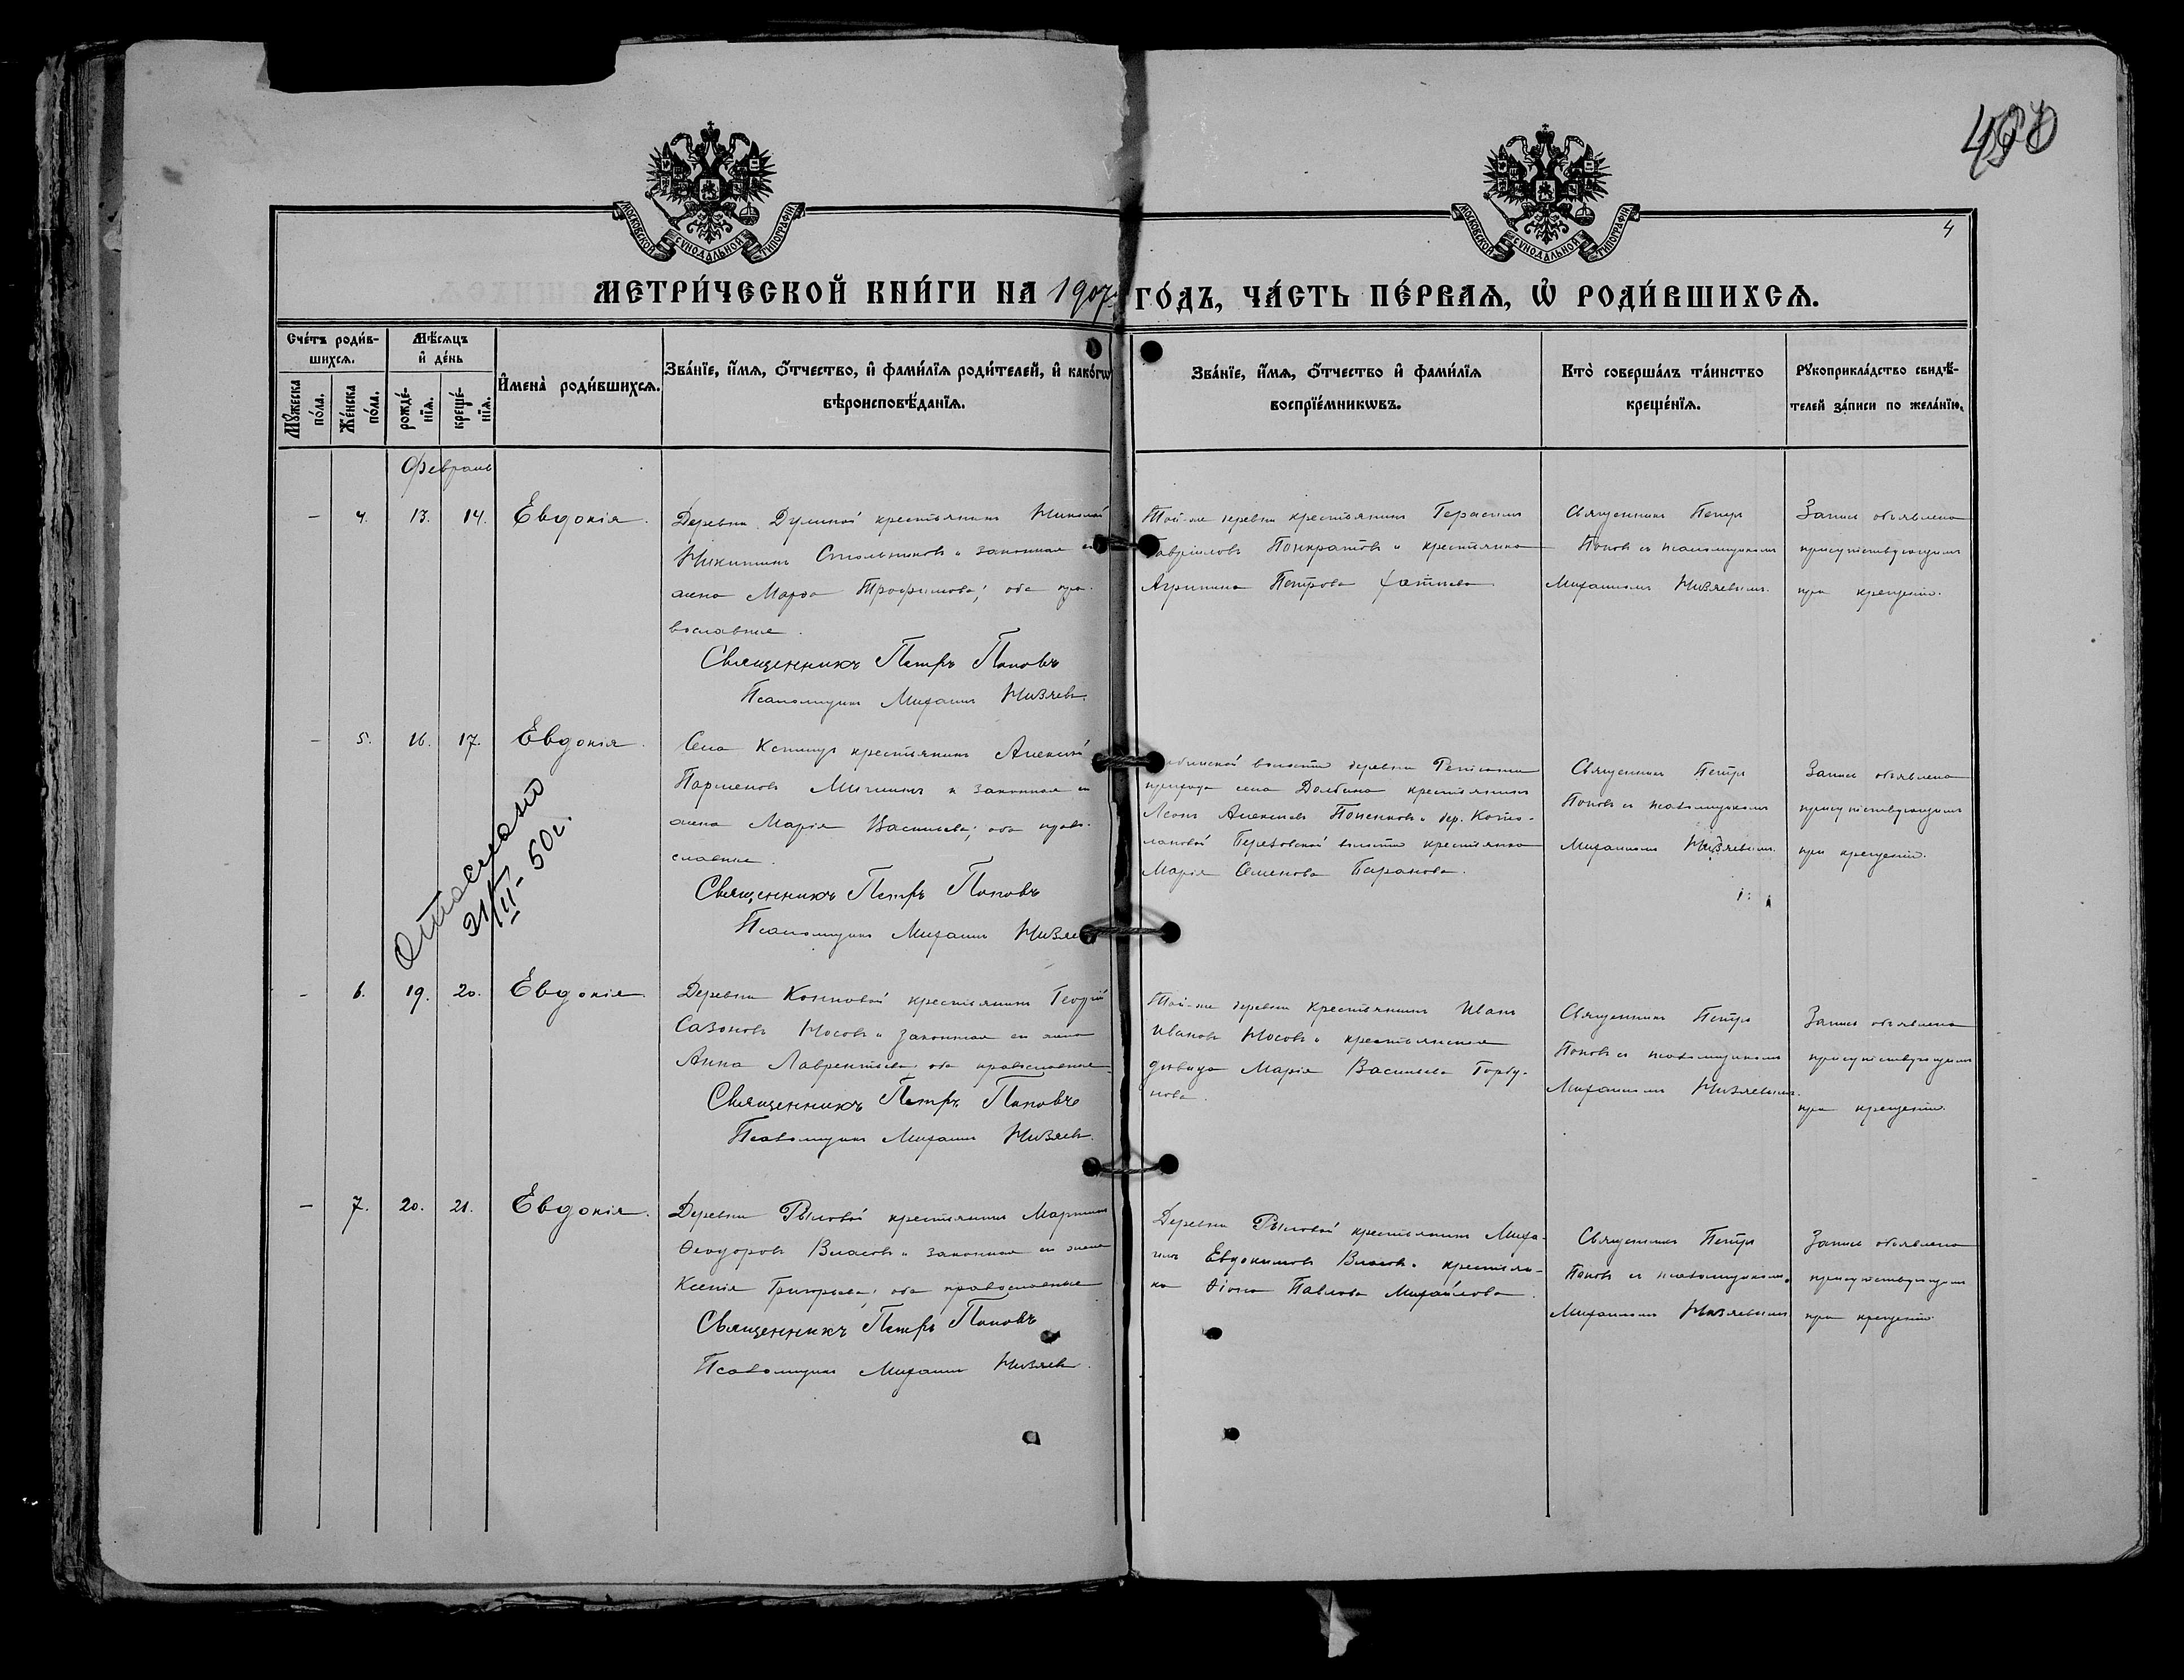 490
4
МОСКОВСКОЙ СѴНОДАЛЬНОЙ ТИПОГРАФІИ
МОСКОВСКОЙ СѴНОДАЛЬНОЙ ТИПОГРАФІИ
МЕТРИ́ЧЕСКОЙ КНИ́ГИ НА 1907 ГО́ДЪ, ЧА́СТЬ ПЕ́РВАѦ, Ѡ҆ РОДИ́ВШИХСѦ.
Сче́тъ роди́в-
шихсѧ.
Мꙋ́жеска по́ла.
Же́нска по́ла.
Мѣ́сѧцъ
и҆ де́нь
рожде́-
нїѧ.
креще́-
нїѧ.
И҆мена̀ роди́вшихсѧ.
Зва́нїе, и҆́мѧ, ѻ҆́тчество, и҆ фами́лїѧ роди́телей, и҆ како́гѡ
вѣроисповѣ́данїѧ.
Зва́нїе, и҆́мѧ, ѻ҆́тчество и҆ фами́лїѧ
воспрїе́мникѡвъ.
Кто̀ соверша́лъ та́инство
креще́нїѧ.
Рꙋкоприкла́дство свидѣ́-
телей за́писи по жела́нїю.
Февраль
- 4. 13. 14. Евдокія.
Деревни Дулиной крестьянинъ Николай
Никитинъ Стольниковъ и законная его
жена Марѳа Трофимова; оба пра-
вославные.
Священникъ Петръ Поповъ
Псаломщикъ Михаилъ Низяевъ.
Той-же деревни крестьянинъ Герасимъ
Гавріиловъ Понкратовъ и крестьянка
Агрипина Петрова
Священникъ Петръ
Поповъ съ псаломщикомъ
Михаиломъ Низяевымъ.
Запись объявлена
присутствующимъ
при крещеніи.
- 5. 16. 17. Евдокія.
Отослано
21/III-50г.
Села крестьянинъ Алексѣй
Парменовъ Мишинъ и законная его
жена Марія Васильева; оба право-
славные.
Священникъ Петръ Поповъ
Псаломщикъ Михаилъ Низяевъ
волости деревни
прихода села Долбина крестьянинъ
Леонъ Алексѣевъ Поненковъ и дер. Кото-
ловой Березовской волости крестьянка
Марія Семенова Баранова.
Священникъ Петръ
Поповъ съ псаломщикомъ
Михаиломъ Низяевымъ.
Запись объявлена
присутствующимъ
при крещеніи.
- 6. 19. 20. Евдокія.
Деревни Конновой крестьянинъ Георгій
Сазоновъ Носовъ и законная его жена
Анна Лаврентьева; оба православные.
Священникъ Петръ Поповъ
Псаломщикъ Михаилъ Низяевъ.
Той-же деревни крестьянинъ Иванъ
Ивановъ Носовъ и крестьянская
дѣвица Марія Васильева Горбу-
нова.
Священникъ Петръ
Поповъ съ псаломщикомъ
Михаиломъ Низяевымъ.
Запись объявлена
присутствующимъ
при крещеніи.
- 7. 20. 21. Евдокія.
Деревни Рыловой крестьянинъ Мартинъ
Ѳеодоровъ Власовъ и законная его жена
Ксенія Григорьева; оба православные
Священникъ Петръ Поповъ
Псаломщикъ Михаилъ Низяевъ.
Деревни Рыловой крестьянинъ Миха-
илъ Евдокимовъ Власовъ и крестьян-
ка Ѳіона Павлова Михайлова.
Священникъ Петръ
Поповъ съ псаломщикомъ
Михаиломъ Низяевымъ
Запись объявлена
присутствующимъ
при крещеніи.